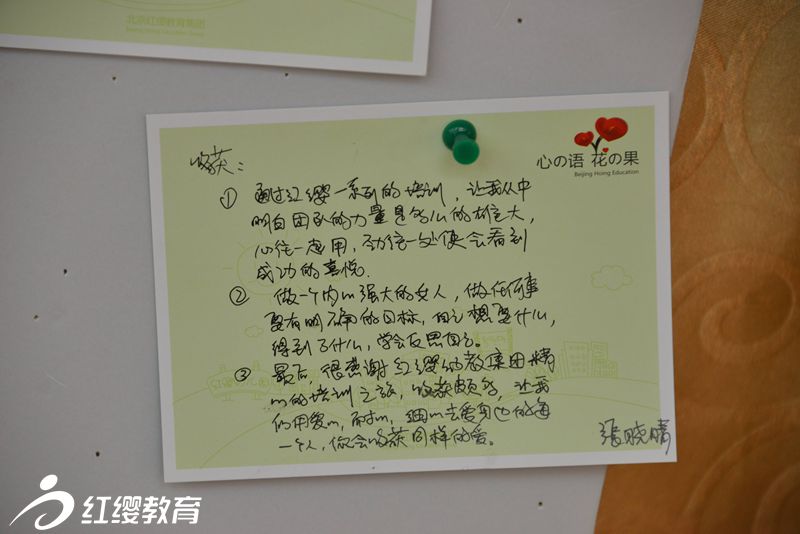 北京红缨教育集团
Beijing Hoing Education Group
心の语 花の果
Beijing Hoing Education
收获：
① 通过红缨一系列的培训，让我从中
明白团队的力量是多么的雄大，
心往一起用，劲往一处使会看到
成功的喜悦.
② 做一个内心强大的女人，做任何事
要有明确的目标，自己想要什么，
得到了什么，学会反思自己。
③ 最后，很感谢红缨幼教集团精
心的培训之旅，收获颇多，让我
们用爱心，耐心，细心去爱身边的每
一个人，你会收获同样的爱。
张晓晴
红缨教育